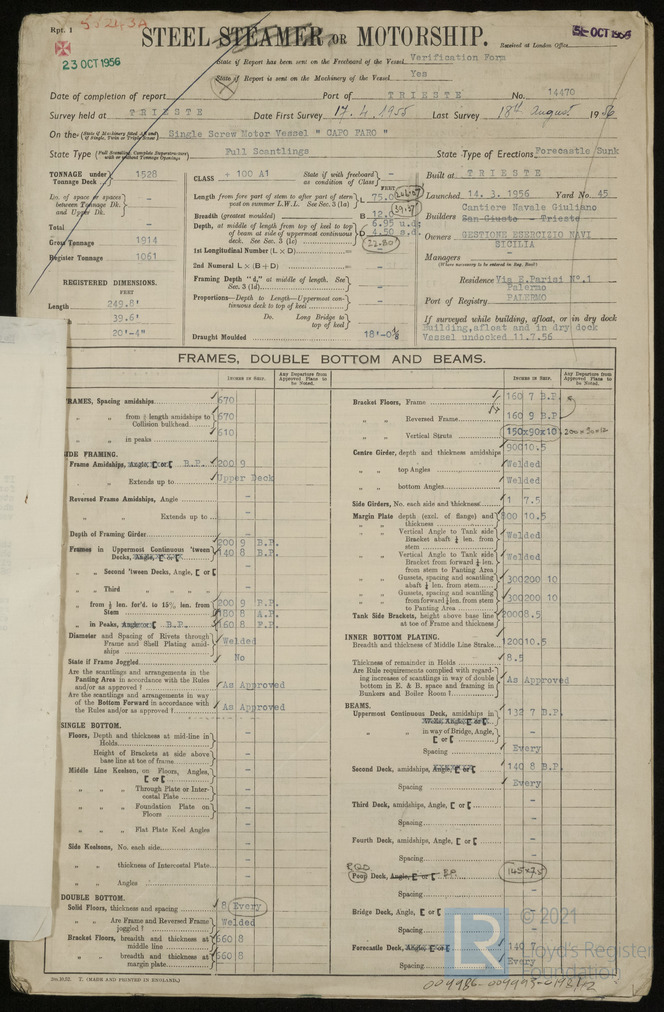 Rpt. 1
23 OCT 1956
STEEL STEAMER OR MOTORSHIP.
Received at London Office
State if Report has been sent on the Freeboard of the Vessel Verification Form
State if Report is sent on the Machinery of the Vessel Yes
Date of completion of report Port of TRIESTE No. 14470
Survey held at TRIESTE Date First Survey 17.4.1955 Last Survey 18th August 1956
On the Single Screw Motor Vessel " CAPO FARO "
State Type Full Scantlings State Type of Erections Forecastle Sunk
TONNAGE under Tonnage Deck 1528
Do. of space or spaces between Tonnage Dk. and Upper Dk.
Total
Gross Tonnage 1914
Register Tonnage 1061
REGISTERED DIMENSIONS.
FEET
Length 249.8'
39.6'
20'-4"
CLASS + 100 A1 State if with freeboard as condition of Class
Length from fore part of stem to after part of stern post on summer L.W.L. See Sec. 3 (1a) L 75.0
Breadth (greatest moulded) B 12.0
Depth, at middle of length from top of keel to top of beam at side of uppermost continuous deck. See Sec. 3 (1c) D 6.95 u.d.
4.50 m.d.
22.80
1st Longitudinal Number (L × D)
2nd Numeral L × (B + D)
Framing Depth "d," at middle of length. See Sec. 3 (1d)
Proportions—Depth to Length—Uppermost continuous deck to top of keel
Do. Long Bridge to top of keel
Draught Moulded
Built at TRIESTE
Launched 14. 3. 1956 Yard No. 45
Builders Cantiere Navale Giuliano
San Giusto - Trieste
Owners GESTIONE ESERCIZIO NAVI
SICILIA
Managers
(Where necessary to be entered in Reg. Book)
Residence Via E.Parisi N°.1
Palermo
Port of Registry PALERMO
If surveyed while building, afloat, or in dry dock
Building,afloat and in dry dock
Vessel undocked 11.7.56
FRAMES, DOUBLE BOTTOM AND BEAMS.
INCHES IN SHIP.
Any Departure from Approved Plans to be Noted.
FRAMES, Spacing amidships 670
" " from ⅗ length amidships to Collision bulkhead 670
" " in peaks 610
SIDE FRAMING.
Frame Amidships, Angle, [ or [ B.P. 200 9
" " Extends up to Upper Deck
Reversed Frame Amidships, Angle
" " Extends up to
Depth of Framing Girder
Frames in Uppermost Continuous 'tween Decks, Angle, [ or [ 200 9 B.P.
140 8 B.P.
" " Second 'tween Decks, Angle, [ or [
" " Third " "
" " from ⅗ len. for'd. to 15% len. from Stem 200 9 B.P.
180 8 A.P.
" " in Peaks, Angle or [ B.P. 160 8 F.P.
Diameter and Spacing of Rivets through Frame and Shell Plating amidships Welded
State if Frame Joggled No
Are the scantlings and arrangements in the Panting Area in accordance with the Rules and/or as approved ? As Approved
Are the scantlings and arrangements in way of the Bottom Forward in accordance with the Rules and/or as approved ? As Approved
SINGLE BOTTOM.
Floors, Depth and thickness at mid-line in Holds
Height of Brackets at side above base line at toe of frame
Middle Line Keelson, on Floors, Angles, [ or [
" " Through Plate or Intercostal Plate
" " Foundation Plate on Floors
" " Flat Plate Keel Angles
Side Keelsons, No. each side
" " thickness of Intercostal Plate
" " Angles
DOUBLE BOTTOM.
Solid Floors, thickness and spacing 8 Every
" " Are Frame and Reversed Frame joggled ? Welded
Bracket Floors, breadth and thickness at middle line 660 8
" " breadth and thickness at margin plate 660 8
2m.10.52. T. (MADE AND PRINTED IN ENGLAND.)
INCHES IN SHIP.
Any Departure from Approved Plans to be Noted.
Bracket Floors, Frame 160 7 B.P.
" " Reversed Frame 160 9 B.P.
" " Vertical Struts 150x90x10
Centre Girder, depth and thickness amidships 900 10.5
" " top Angles Welded
" " bottom Angles Welded
Side Girders, No. each side and thickness 1 7.5
Margin Plate depth (excl. of flange) and thickness 800 10.5
" " Vertical Angle to Tank side Bracket abaft ¼ len. from stem Welded
" " Vertical Angle to Tank side Bracket from forward ¼ len. from stem to Panting Area Welded
" " Gussets, spacing and scantling abaft ¼ len. from stem 300 200 10
" " Gussets, spacing and scantling from forward ¼ len. from stem to Panting Area 300 200 10
Tank Side Brackets, height above base line at toe of Frame and thickness 2000 8.5
INNER BOTTOM PLATING.
Breadth and thickness of Middle Line Strake 1200 10.5
Thickness of remainder in Holds 8.5
Are Rule requirements complied with regarding increases of scantlings in way of double bottom in E. & B. space and framing in Bunkers and Boiler Rm ? As Approved
BEAMS.
Uppermost Continuous Deck, amidships in Wells, Angle, [ or [ 132 7 B.P.
" " in way of Bridge, Angle, [ or [
Spacing Every
Second Deck, amidships, Angle, [ or [ 140 8 B.P.
Spacing Every
Third Deck, amidships, Angle, [ or [
Spacing
Fourth Deck, amidships, Angle, [ or [
Spacing
Poop Deck, Angle, [ or [ B.P.
Spacing
Bridge Deck, Angle, [ or [
Spacing
Forecastle Deck, Angle, [ or [ 140 7
Spacing Every
LR © 2021
Lloyd's Register
Foundation